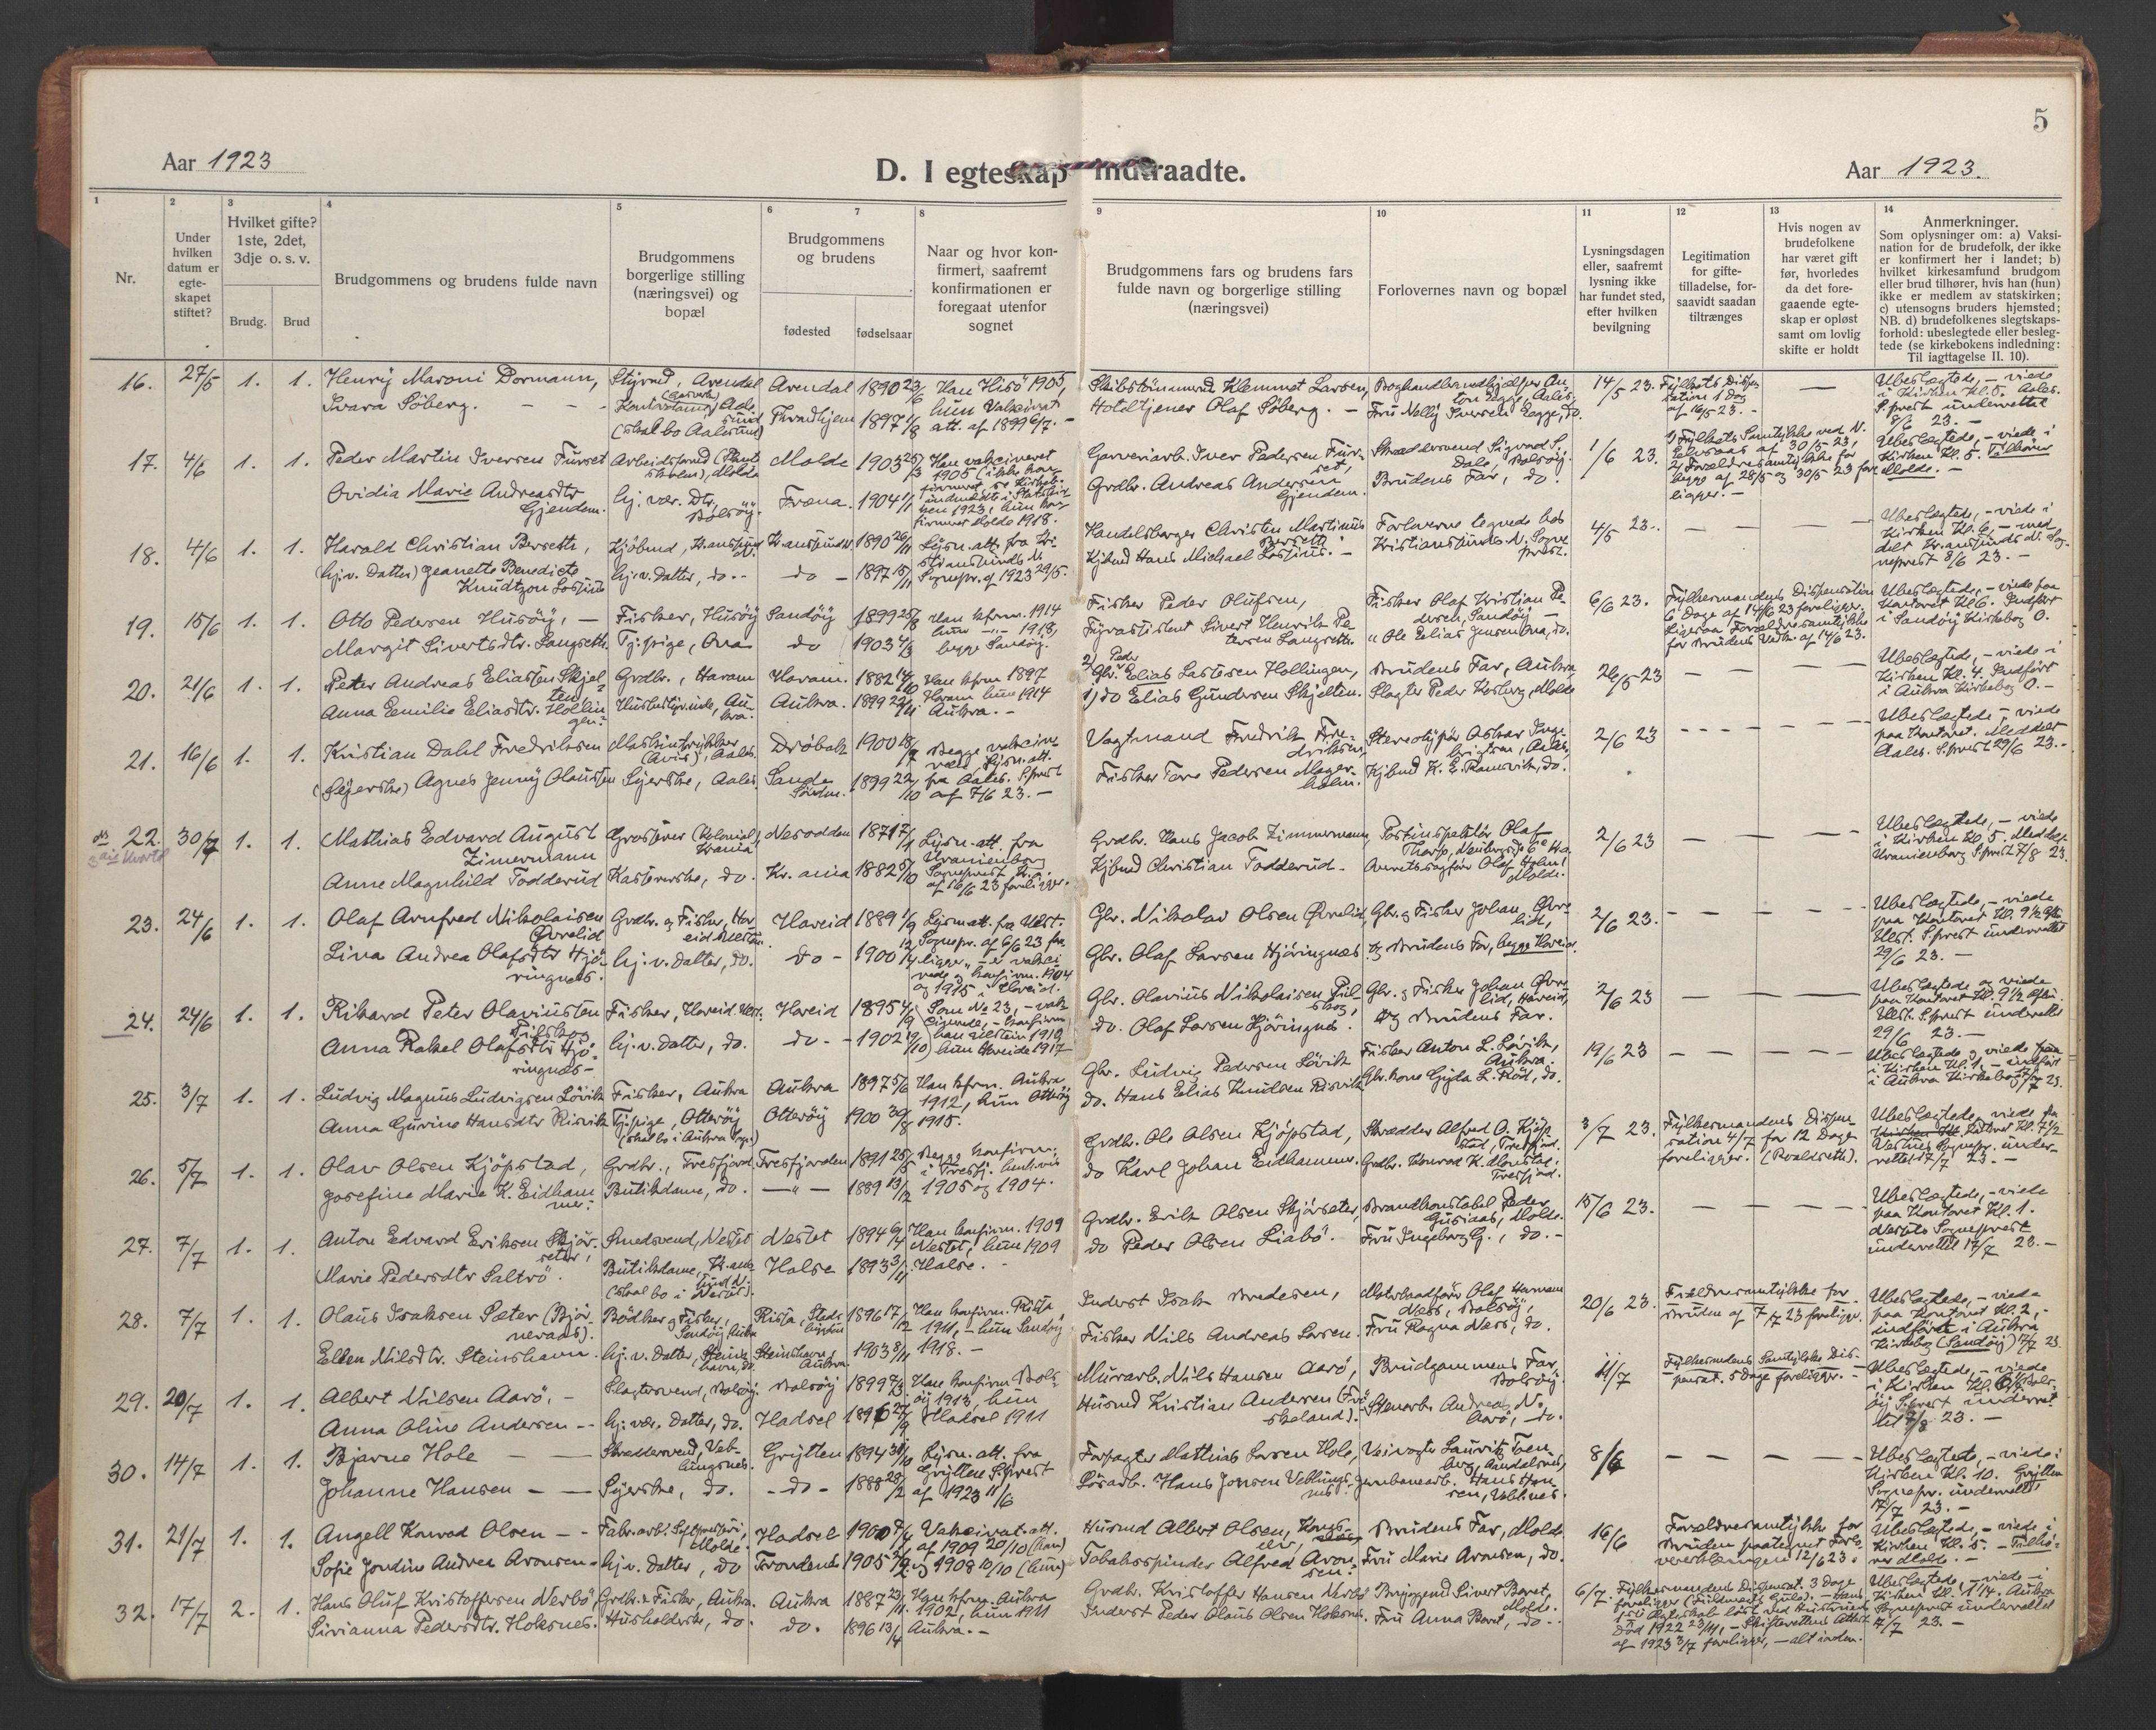 5
Aar 1923
D. I egteskap indtraadte.
Aar 1923.
1
2
3
4
5
6
7
8
9
10
11
12
13
14
Nr.
Under
hvilken
datum er
egte-
skapet
stiftet?
Hvilket gifte?
1ste, 2det,
3dje o. s. v.
Brudg.
Brud
Brudgommens og brudens fulde navn
Brudgommens
borgerlige stilling
(næringsvei) og
bopæl
Brudgommens
og brudens
fødested
fødselsaar
Naar og hvor kon-
firmert, saafremt
konfirmationen er
foregaat utenfor
sognet
Brudgommens fars og brudens fars
fulde navn og borgerlige stilling
(næringsvei)
Forlovernes navn og bopæl
Lysningsdagen
eller, saafremt
lysning ikke
har fundet sted,
efter hvilken
bevilgning
Legitimation
for gifte-
tilladelse, for-
saavidt saadan
tiltrænges
Hvis nogen av
brudefolkene
har været gift
før, hvorledes
da det fore-
gaaende egte-
skap er opløst
samt om lovlig
skifte er holdt
Anmerkninger.
Som oplysninger om: a) Vaksi-
nation for de brudefolk, der ikke
er konfirmert her i landet; b)
hvilket kirkesamfund brudgom
eller brud tilhører, hvis han (hun)
ikke er medlem av statskirken;
c) utensogns bruders hjemsted;
NB. d) brudefolkenes slegtskaps-
forhold: ubeslegtede eller besleg-
tede (se kirkebokens indledning:
Til iagttagelse II. 10).
16. 27/5 1. 1. Henry Maroni Dormann,
Svara Søberg.
Styrmd, Arendal
(skal bo Aalesund)
Arendal 1890 23/6
Throndhjem 1897 1/8
Han Hisö 1905,
hun Vakcinat.
att. af 1899 6/7.
Skibstømmermd Klemmet Larsen,
Hoteltjener Olaf Søberg.
Fru Nelly Iversen Legge, do.
14/5 23.
Fylkets Dispen-
sation 1 Dag
af 16/5 23.
Ubeslægtede, - viede
i Kirken Kl. 5. Aales.
S.prest underrettet
8/6 23.
17. 4/6 1. 1. Peder Martin Iversen Furset
Ovidia Marie Andreasdtr
Gjendem.
hj. vær. Dtr,
Bolsöy.
Molde 1903
Fræna. 1904 1/1
Han vakcineret
1905
Garveriarb. Iver Pedersen Fur-
set,
Grdbr. Andreas Andersen
Gjendem.
Skræddersvend Sigvard S.
Dale, Bolsöy.
Brudens Far, do.
1/6 23.
Ubeslægtede, - viede i
Kirken Kl. 5. Tilhörer
Molde.
18. 4/6 1. 1. Harald Christian Bersetth,
(hj. v. Datter) Jeanette Benedicte
Knudtzon Lossius
Kjøbmd, Kr.ansund
N.
hj. v. Datter, do.
Kr.ansund N. 1890 26/11
do - 1897 15/11
Lysn. att. fra Kr-
stiansunds N.
Sognepr. af 1923 29/5.
Handelsborger Christen Martinus
Bersetth
Kjbmd Hans Michael Lossius.
Forloverne tegnede hos
Kristiansunds N. Sogne
prest.
4/5 23.
Ubeslægtede, - viede i
Kirken Kl. 6, - med
delt Kr.ansunds N. Sog-
neprest 8/6 23.
19. 15/6 1. 1. Otto Pedersen Husöy,
Margit Sivertsdtr. Langseth.
Fisker, Husöy
Tj.pige, Ona
Sandöy 1899 25/8
do 1903 4/3
Han kfrm. 1914
hun -"- 1918,
begge Sandöy.
Fisker Peder Olufsen,
Fyrassistent Sivert Henrik Pe-
tersen Langseth.
Fisker Olaf Kristian Pe-
dersen, Sandöy
" Ole Elias Jensen Ona, do.
6/6 23.
Fylkesmandens Dispensation
6 Dage af 14/6 23 foreligger.
Ligesaa Forældresamtykke
for Brudens Vedk. af 14/6 23.
Ubeslægtede, - viede paa
Kontoret Kl 6. Indført
i Sandöy Kirkebog O.
20. 21/6 1. 1. Peter Andreas Eliassen Skjel-
ten
Anna Emilie Eliasdtr. Hollin
gen.
Grdbr., Haram
Husbestyrerinde, Au-
kra.
Haram. 1882 14/10
Aukra. 1899 22/11
Han kfrm 1897
Haram, hun 1914
Aukra.
Peder
2) Gbr. Elias Lastesen Hollingen,
1) do Elias Gundersen Skjelten.
Brudens Far, Aukra
Slagter Peder Kosberg, Molde
26/5 23
Ubeslægtede, - viede i
Kirken Kl. 4. Indført
i Aukra Kirkebog O.
21. 16/6 1. 1. Kristian Dahl Fredriksen
(Syerske) Agnes Jenny Olaussen
Maskintrykker
(Avis), Aales.
Syerske, Aales.
Drøbak 1900 18/9
Sande
Söndm. 1899 22/10
Begge vakcine-
rede, Lysn. att.
fra Aales. S.prest
af 7/6 23.
Vagtmand Fredrik Fre-
driksen,
Fisker Tore Pedersen Mager-
holm.
Stereotypør Oskar Inge-
brigtsen, Aales,
Kjbmd K. E. Ramsvik, do.
2/6 23
Ubeslægtede, - viede
paa Kontoret. Meddelt
Aales. S.prest 29/6 23.
22. 30/6 1. 1. Mathias Edvard August
Zimermann
Anne Magnhild Todderud
Grosserer (Kolonial)
Krania
Kasererske, do.
Nesodden 1871 7/1
Kr. ania 1882 5/10
Lysn. att. fra
Uranienborg
Sogneprest Kr.a.
af 16/6 23 foreligger.
Grdbr. Hans Jacob Zimmermann,
Kjbmd Christian Todderud.
Postinspektør Olaf
Overretssagfører Olaf Holm,
Molde.
2/6 23
Ubeslægtede, - viede
i Kirken Kl. 5. Meddelt
Uranienborg S.prest 7/8 23.
23. 24/6 1. 1. Olaf Arnfred Nikolaisen
Øvrelid
Lina Andrea Olafsdtr Hjö-
ringnes.
Grdbr. og Fisker, Har-
eid
hj. v. Datter, do.
Hareid 1889 1/9
do - 1900
Lysn. att. fra Ulst.
Sognepr. af 6/6 23 fo-
religger, - er vakci
nede og konfirm. 1904
og 1915 i Hareid.
Gbr. Nikolai Olsen Øvrelid,
Gbr. Olaf Larsen Hjöringnes
Gbr. og Fisker Johan Øvre-
lid,
og Brudens Far, begge Hareid.
2/6 23.
Ubeslægtede, - viede
paa Kontoret Kl. 9 1/2 Aften
Ulst. S.prest underrettet
29/6 23.
24. 24/6 1. 1. Rikard Peter Olaviussen
Pilskog
Anna Rakel Olafsdtr Hjö-
ringnes
Fisker, Hareid. Ulst.
hj. v. Datter, do.
Hareid 1895 4/9
do. - 1902
Som No 23, - vak-
cinerede, - konfirm.
han Ulstein 1910
hun Hareide 1917
Gbr. Olavius Nikolaisen Pil-
skog,
do. Olaf Larsen Hjöringnes.
Gbr. og Fisker Johan Øvre-
lid, Hareid,
og Brudens Far.
2/6 23
Ubeslægtede og viede
paa Kontoret Kl. 9 1/2 Aften.
Ulst. S.prest underrettet
29/6 23.
25. 3/7 1. 1. Ludvig Magnus Ludvigsen Lövik
Anna Gurine Hansdtr Risvik
Fisker, Aukra
Tj.pige, Otteröy
Aukra 1897 5/6
Otteröy 1900 30/8
Han kfrm. Aukra
1912, hun Otteröy
1915.
Gbr. Ludvig Pedersen Lövik
do. Hans Elias Knutsen Risvik
Fisker Anton L. Lövik,
Aukra.
Gbr.kone Gyda L. Röd, do.
19/6 23
26. 5/7 1. 1. Olav Olsen Kjöpstad,
Josefine Marie K. Eidham-
mer.
Grdbr., Tresfjord
Butikdame, do.
Tresfjorden 1891 25/5
-"- 1889 13/12
Begge konfirm.
i Tresfj. henh.vis
1905 og 1904.
Grdbr. Ole Olsen Kjöpstad,
do Karl Johan Eidhammer.
Skrædder Alfred O. Kjöp
stad, Tresfjord.
Grdbr. Konrad K. Monstad,
Tresfjord.
3/7 23.
Fylkesmandens Dispen-
sation 4/7 for 12 Dage
foreligger.
27. 7/7 1. 1. Anton Edvard Eriksen Skjör-
seter,
Marie Pedersdtr Saltrö.
Smedsvend, Nesset
Butikdame, Kr.an-
sund N.
(skal bo i Nesset).
Nesset 1894
Halse 1893 3/11
Han konfirm. 1909
Nesset, hun 1909
Halse.
Grdbr. Erik Olsen Skjörseter,
do Peder Olsen Liabö.
Brandkonstabel Peder
Gusiaas, Molde.
Fru Ingeborg G., do.
15/6 23.
Ubeslægtede, - viede
paa Kontoret Kl. 1.
Nessets Sogneprest
underrettet 17/7 23.
28. 7/7 1. 1. Olaus Isaksen Sæter (Bjør
neraas).
Ellen Nilsdtr. Steinshavn.
Bödker og Fisker,
Sandöy Aukra
hj. v. Datter, Steins
havn, do.
1896 17/12
Steinshavn,
Aukra 1903 8/11
Han konfirm. Rissa
1911, - hun Sandöy
1918.
Inderst Isak Bredesen,
Fisker Nils Andreas Larsen.
Næss, Bolsöy,
Fru Ragna Næss, do.
20/6 23.
Forældresamtykke for
Bruden af 7/7 23 foreligger.
Ubeslægtede, - viede
paa Kontoret Kl. 2, -
indført i Aukra
Kirkebog (Sandöy) 17/7 23.
29. 20/7 1. 1. Albert Nilsen Aarö.
Anna Oline Andersen
Slagtersvend, Bolsöy.
hj. vær. Datter, do.
Bolsöy 1899
Hadsel 1896
Han konfirm. Bols-
öy 1913, hun
Hadsel 1911
Murarb. Nils Hansen Aarö,
Husmd Kristian Andersen
Brudgommens Far,
Bolsöy.
Stenarb. Andreas N.
Aarö, do.
11/7
Fylkesmdens Samtykke Dis-
pensat. 5 Dage foreligger.
30. 14/7 1. 1. Bjarne Hole
Johanne Hansen
Skræddersvend, Veb-
lungsnes.
Syerske, do.
Grytten 1894 31/10
do 1888 28/2
Lysn. att. fra
Grytten S.prest
af 1923 11/6
Forpagter Mathias Larsen Hole,
Lösarb. Hans Jonsen Veblungs-
nes.
Veivogter Lauritz Tven-
berg, Aandalsnes,
Jernbanearb. Hans Han-
sen, Vebl.nes.
8/6
Ubeslægtede, - viede i
Kirken Kl. 10. Grytten
Sognepr. underrettet
17/7 23.
31. 21/7 1. 1. Angell Konrad Olsen
Sofie Jondine Andrea Aronsen
Molde.
hj. v. Datter, do
Hadsel 1900
Trondenes 1905
Vakcinat. att.
af 1909 20/10 (han)
og 1908 10/10 (hun)
Husmd Albert Olsen,
Tobakspinder Alfred Aron
sen.
Brudens Far, Molde
Fru Marie Aronsen, do.
16/6
Forældresamtykke for
Bruden
12/6 23.
Ubeslægtede, - viede i
Kirken Kl. 5. - Tilhö-
rer Molde.
32. 17/7 2. 1. Hans Oluf Kristoffersen Nerbö
Sirianna Pedersdtr. Hoksnes.
Grdbr. & Fisker, Aukra.
Husholderske, do.
Aukra 1887 23/11
do. 1896 13/4
Han kfrm. Aukra
1902, hun 1911
Aukra.
Grdbr. Kristoffer Hansen Nerbö
Inderst Peder Olaus Olsen Hoksnes.
Bryggemd Sivert Boret,
Molde.
Fru Anna Boret, do
6/7
Fylkesmandens Dispensat. 3 Dage
Død 1922 23/11, - Skifterettens Attest
af 1923 3/7 foreligger, - alt i orden.
Ubeslægtede, - viede i
Kirken Kl. 1 1/4. Aukra
Sogneprest underrettet
17/7 23.